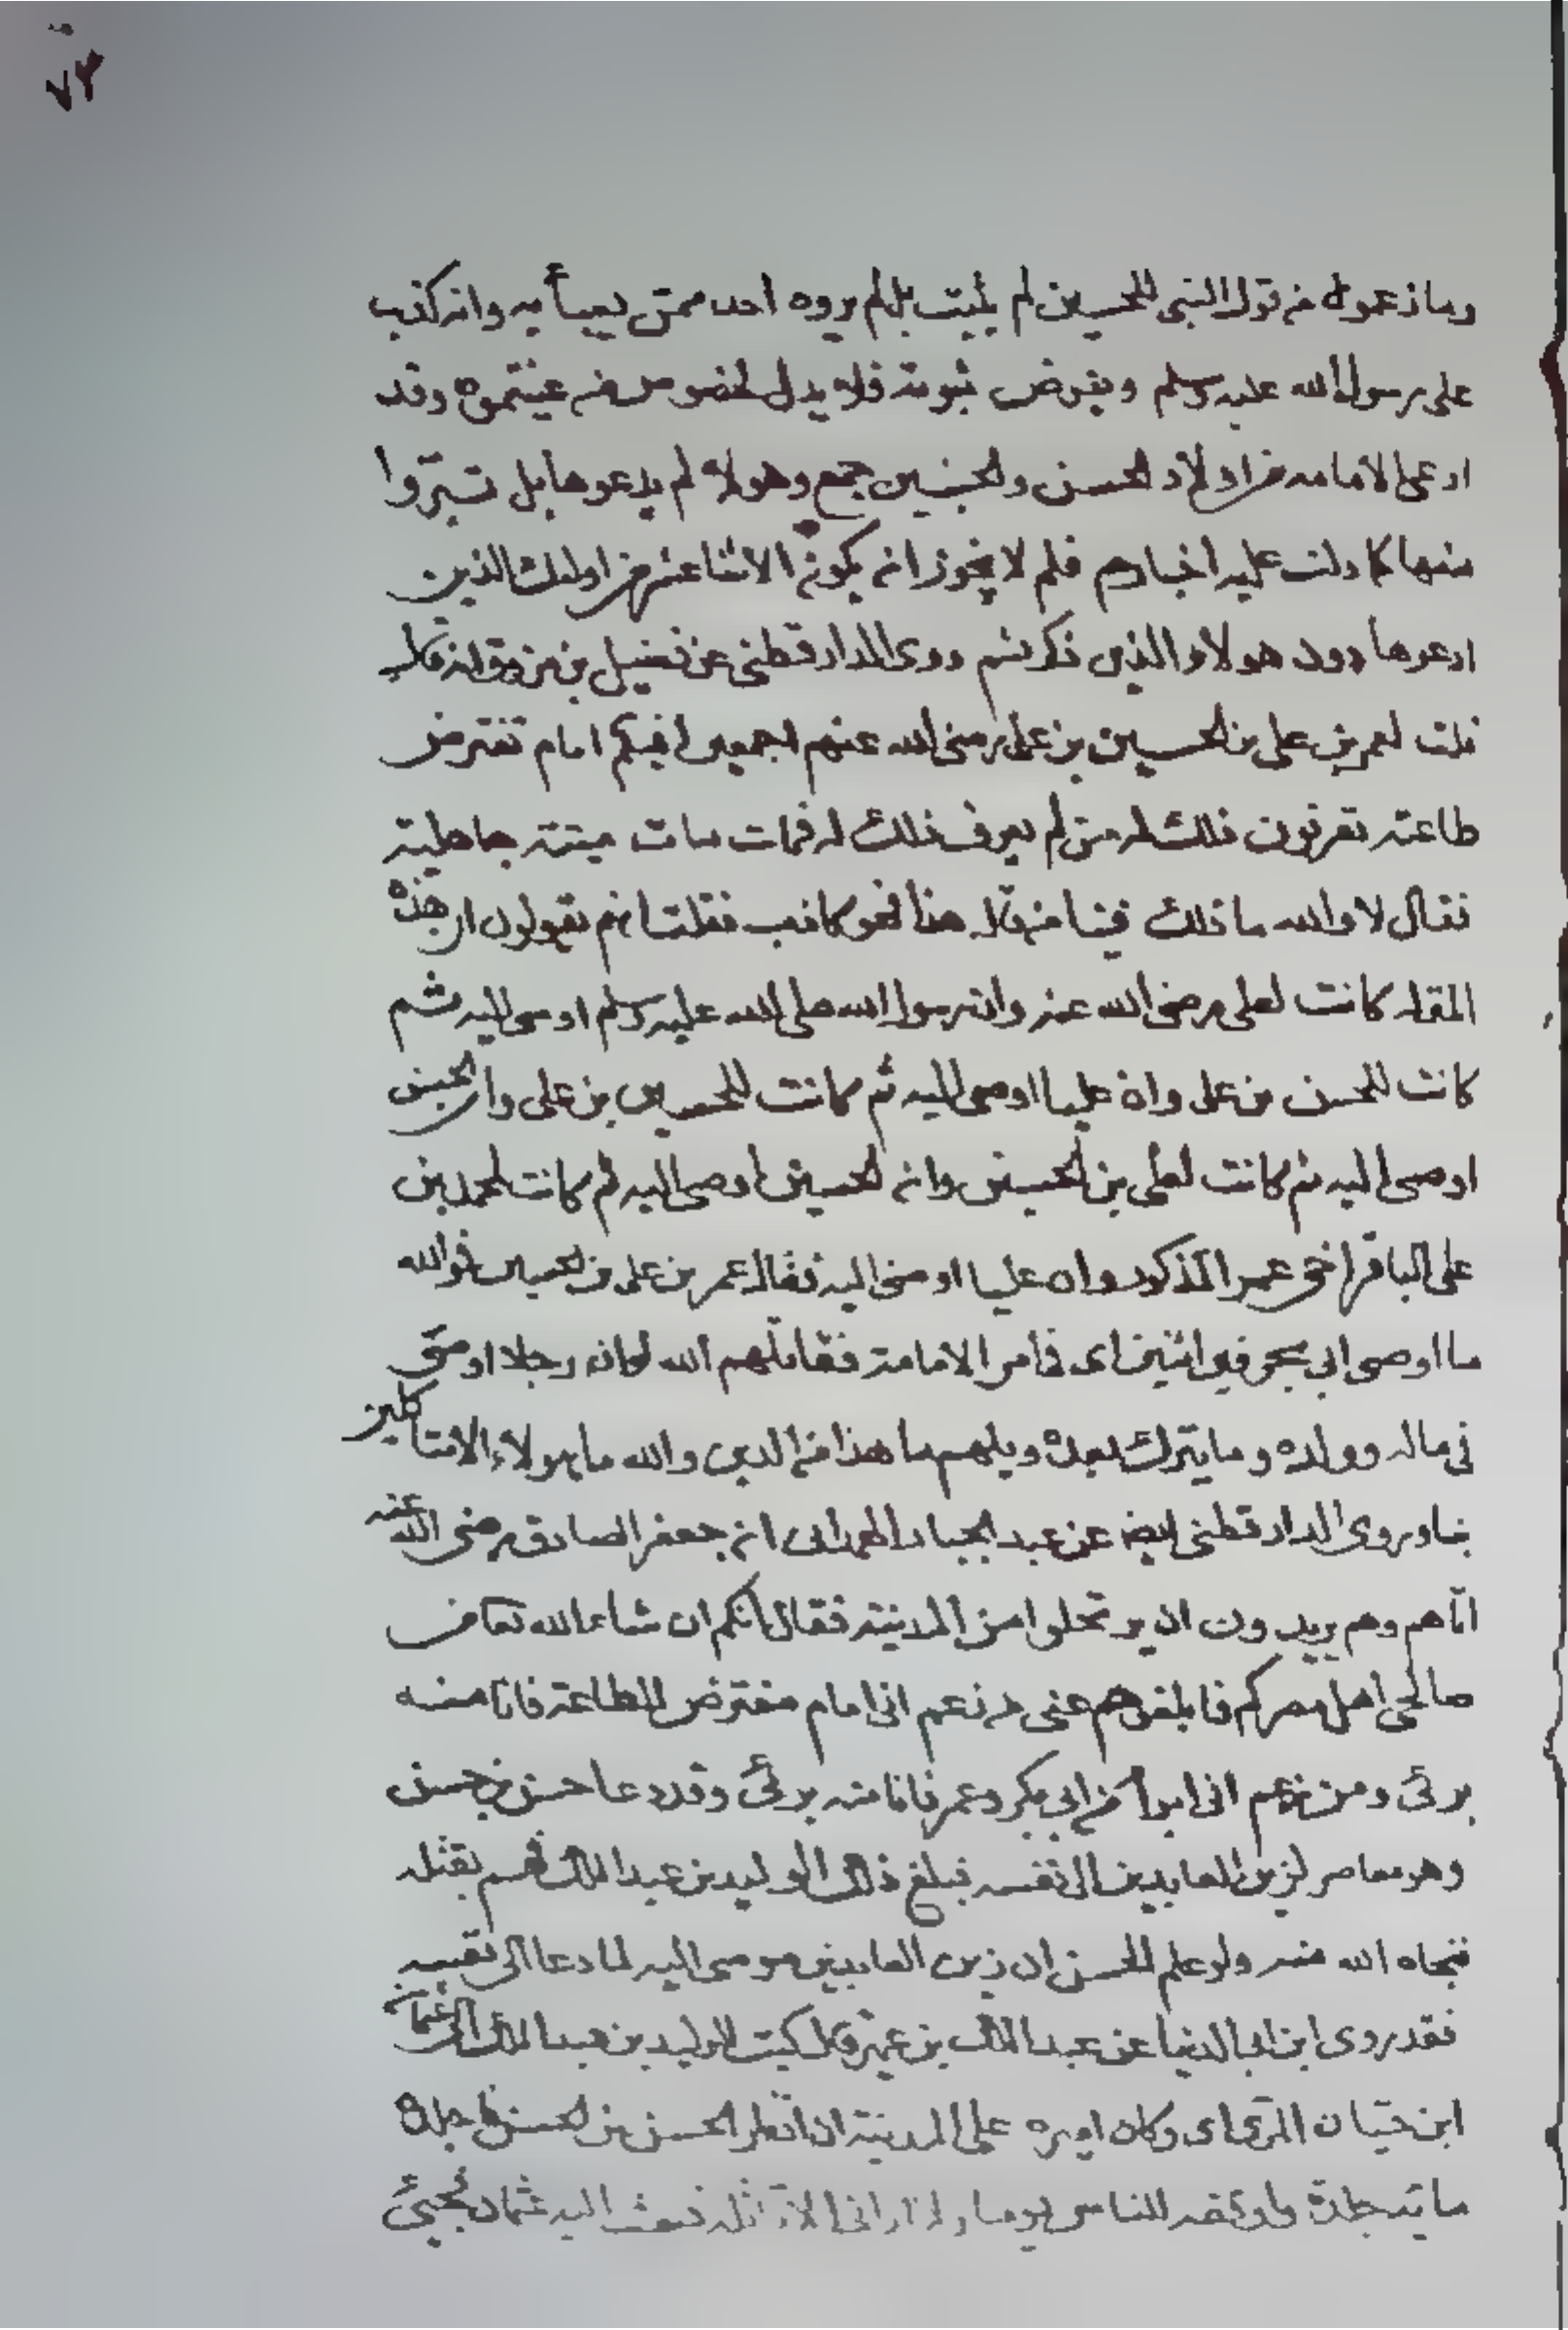 ٧٣
وما زعموا من قول النبي للحسين لم يثبت بل لم يروه احد ممن يعبأ به وانه كذب
على رسول الله عليه وسلم وبفرض ثبوته فلا يدل لخصوص من عينتموه وقد
ادعى الامامه من اولاد الحسن والحسين جمع وهولاء لم يدعوها بل تبرّوا
منها كما دلت عليه اخبارهم فلم لا يجوز ان يكون الاثنا عشر من اولئك الذين
ادعوها دون هولاء الذين ذكرتم وروى الدارقطنى عن فضيل بن مرزوق انه قال
قلت لعمر بن على بن الحسين بن على رضى الله عنهم اجمعين افيكم امام تفترض
طاعته تعرفون ذلك له من لم يعرف ذلك له فمات مات ميتته جاهلية
فقال لا والله ما ذلك فينا من قال هذا فهو كاذب فقلت انهم يقولون ان هذه
المقاله كانت لعلى رضى الله عنه وان رسول الله صلى الله عليه وسلم اوصى اليه ثم
كانت للحسن بن على وان عليا اوصى اليه ثم كانت للحسين بن على وان الحسن
اوصى اليه ثم كانت لعلى بن الحسين وان الحسين اوصى اليه ثم كانت لمحمد بن
على الباقر اخى عمر المذكور وان عليا اوصى اليه فقال عمر بن على بن الحسين فوالله
ما اوصى ابى بحرفين اثنين اى فى امر الامامة فقاتلهم الله لو كان رجلا اوصى
فى ماله وولده وما يترك بعده ويلهم ما هذا من الدين والله ما هولاء الا متاكلين
بنا وروى الدارقطنى ايضا عن عبد الجبار الهمدانى ان جعفر الصادق رضى الله عنه
اتاهم وهم يريدون ان يرتحلوا من المدينة فقال انكم ان شاء الله تعالى من
صالحى اهل مصركم فابلغوهم عنى من زعم انى امام مفترض للطاعة فانا منه
برئ ومن زعم انى ابرأ من ابى بكر وعمر فانا منه برئ وقد دعا حسن بن حسن
وهو معاصر لزين العابدين الى نفسه فبلغ ذلك الوليد بن عبد الملك فهم بقتله
فنجاه الله منه ولو علم الحسن ان زين العابدين موصى اليه لما دعا الى نفسه
فقد روى ابن ابى الدنيا عن عبد الملك بن عمير قال كتب الوليد بن عبد الملك الى عثمان
ابن حيان المرى اى وكان اميره على المدينة ان انظر الحسن بن الحسن فاجلده
مايته جلدة واوقفه للناس يوما ولا ارانى الا قاتله فبعث اليه عثمان فجئ